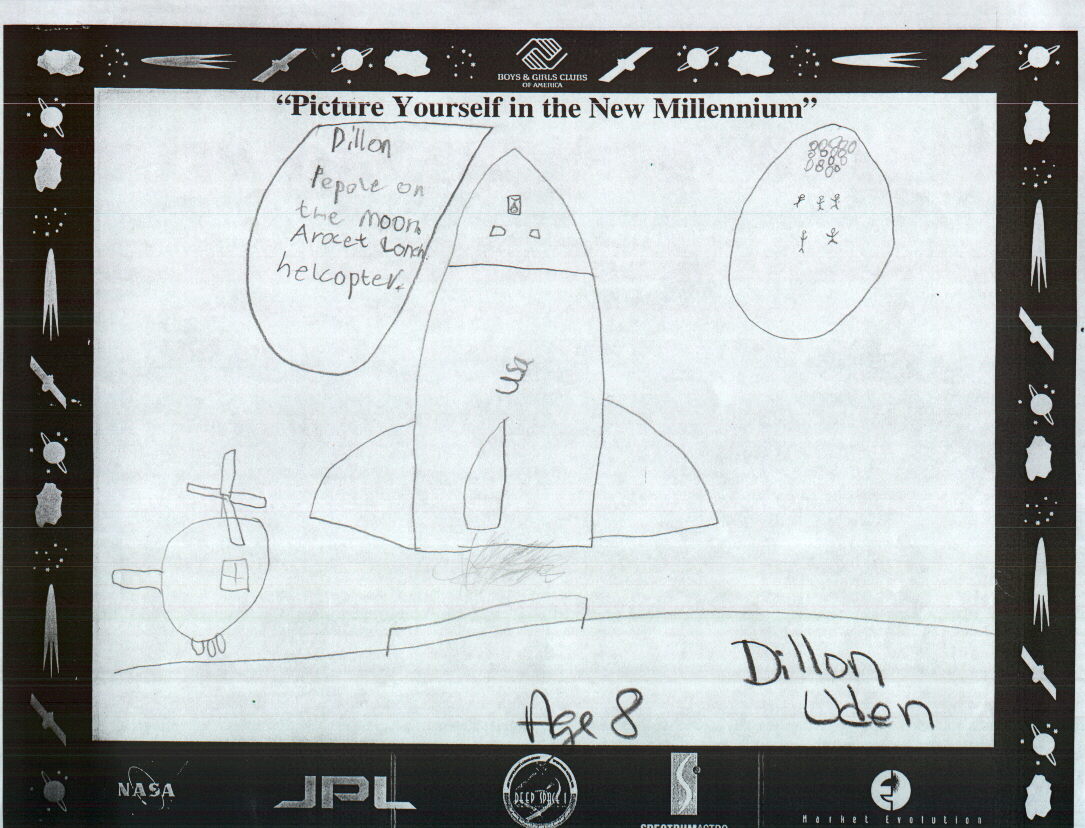 BOYS & GIRLS CLUBS
OF AMERICA
“Picture Yourself in the New Millennium”
Dillon
Pepole on
the moon.
Arocet Lonch
helcopter.
Usa
Dillon
Uden
Age 8
NASA
JPL
DEEP SPACE 1
SPECTRUMASTRO
Market Evolution